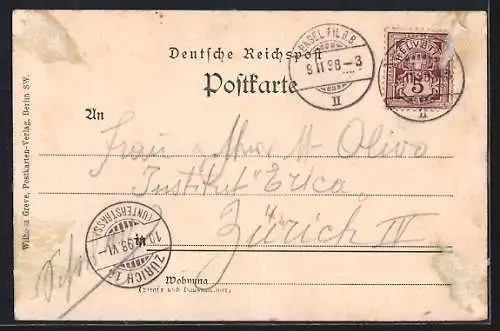 Deutsche Reichspost
Postkarte
BASEL FIL. B.B.
9 II 98 – 3
II
HELVETIA
5
An
Frau
Olivo
Institut Erica
Zürich IV
10 II 98. VI –
ZÜRICH
(UNTERSTRASS)
Wohnung
(Straße und Hausnummer)
Wilhelm Greve, Postkarten-Verlag, Berlin SW.